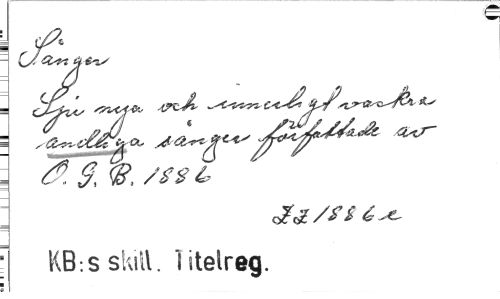 Sånger
Sju nya och innerligt vackra
andliga sånger författade av
O. G. B. 1886
ZZ 1886 e
KB:s skill. Titelreg.